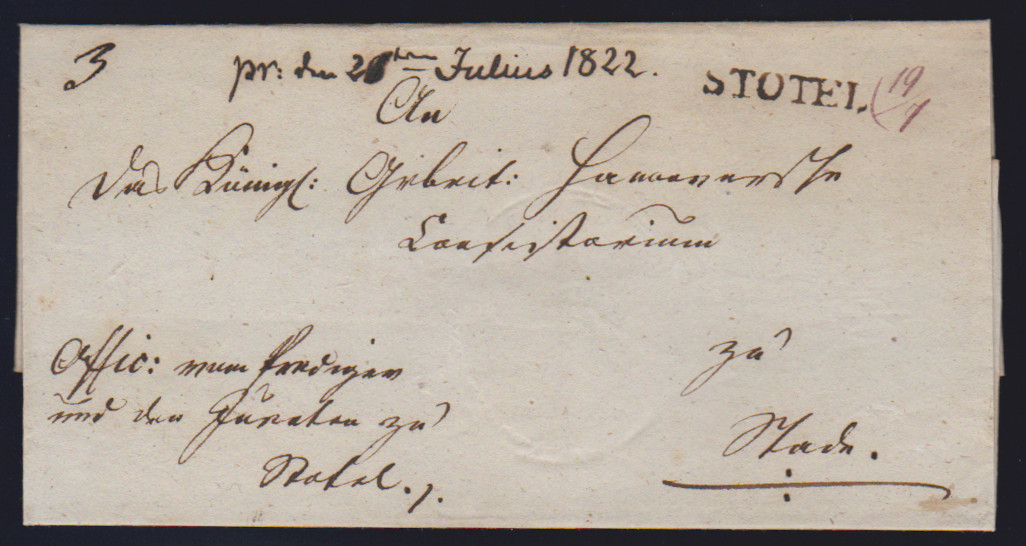 3 pr: den 2 ten Julius 1822. STOTEL 19/7
An
Das Königl: Großbrit: Hannoversche
Consistorium
Offic: vom Prediger
und den Juraten zu
Stotel.
zu
Stade.